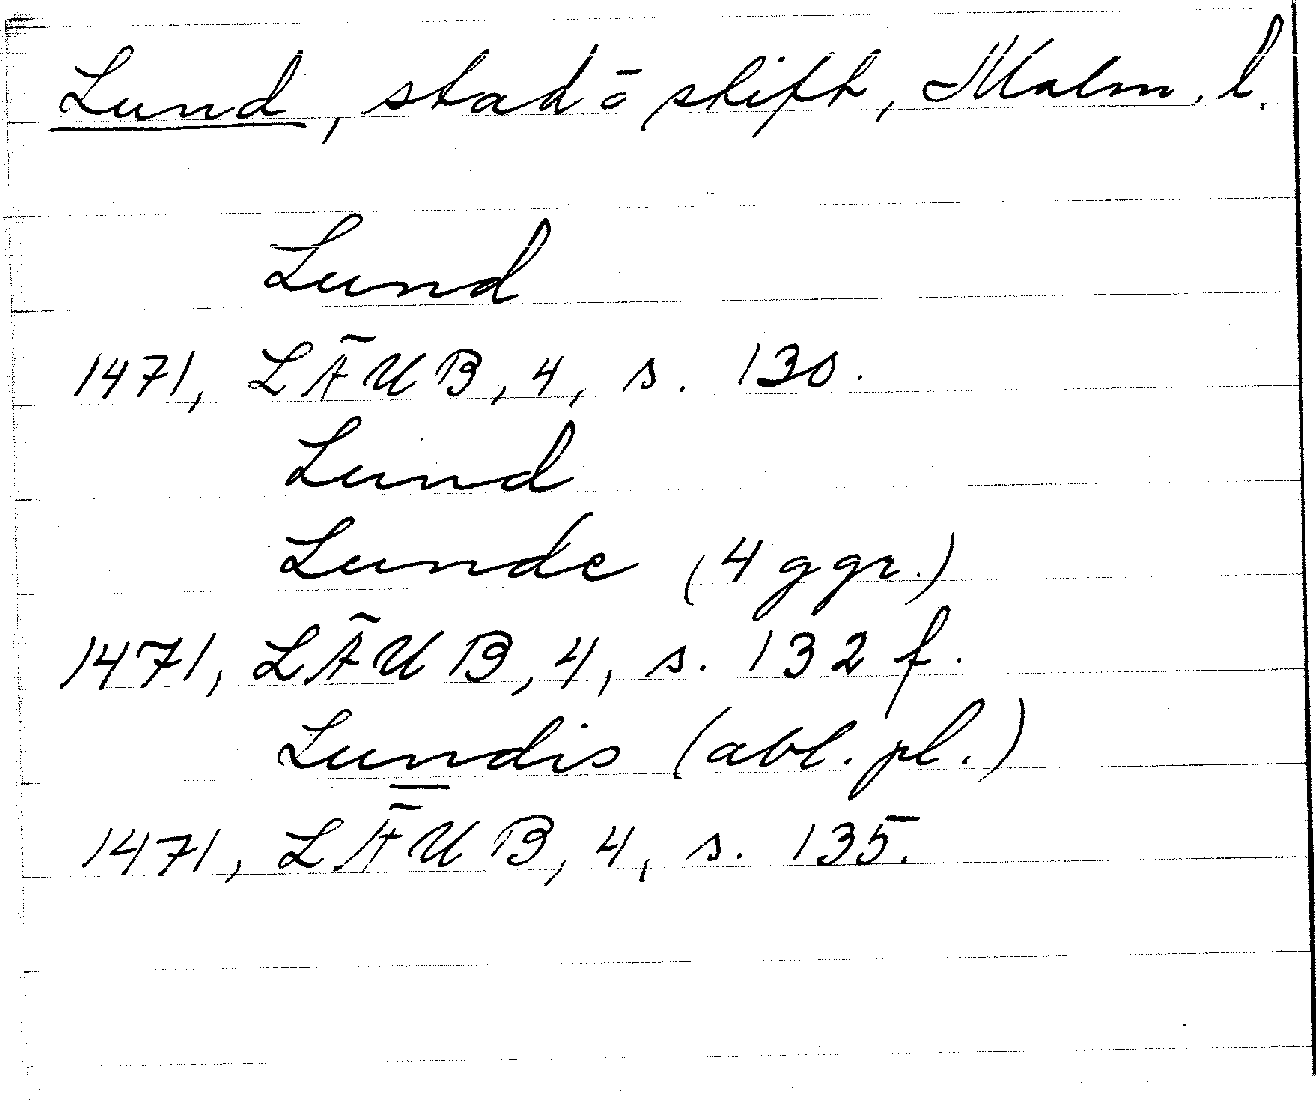 Lund, stad ō stift, Malm. l.
Lund
1471, LÄUB, 4, s. 130.
Lund
Lunde (4 ggr.)
1471, LÄUB, 4, s. 132 f.
Lundis (abl. pl.)
1471, LÄUB, 4, s. 135.